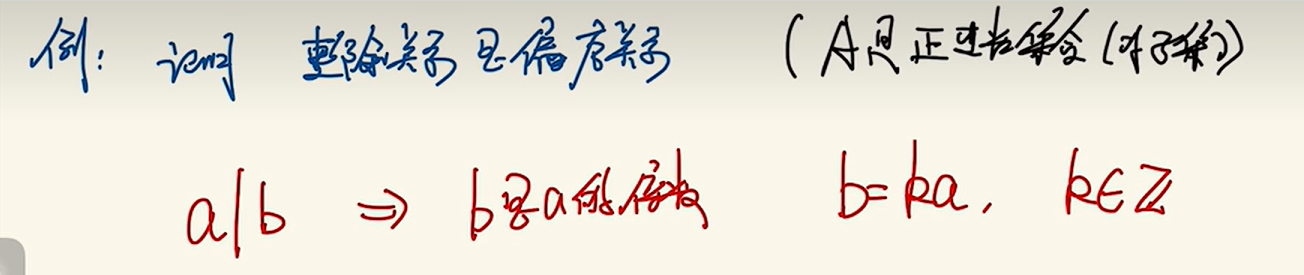 例: 证明 整除关系是偏序关系 (A是正整数集合(或子集))
a|b ⇒ b是a的倍数 b=ka, k∈ℤ